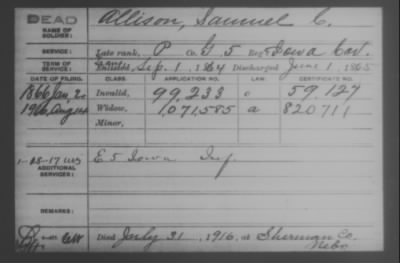 DEAD
NAME OF SOLDIER:
Allison, Samuel C.
SERVICE:
Late rank, P Co. G, 5 Reg't Iowa Cav.
TERM OF SERVICE:
Enlisted Sep. 1, 1864 Discharged June 1, 1865
DATE OF FILING. CLASS. APPLICATION NO. LAW. CERTIFICATE NO.
1866 Jan, 20 Invalid, 99,233 c 59,127
1916, Aug Widow, 1,071,585 a 820711
Minor,
ADDITIONAL SERVICES:
E 5 Iowa Inf.
REMARKS:
Died July 31, 1916, at Sherman Co.
Nebr